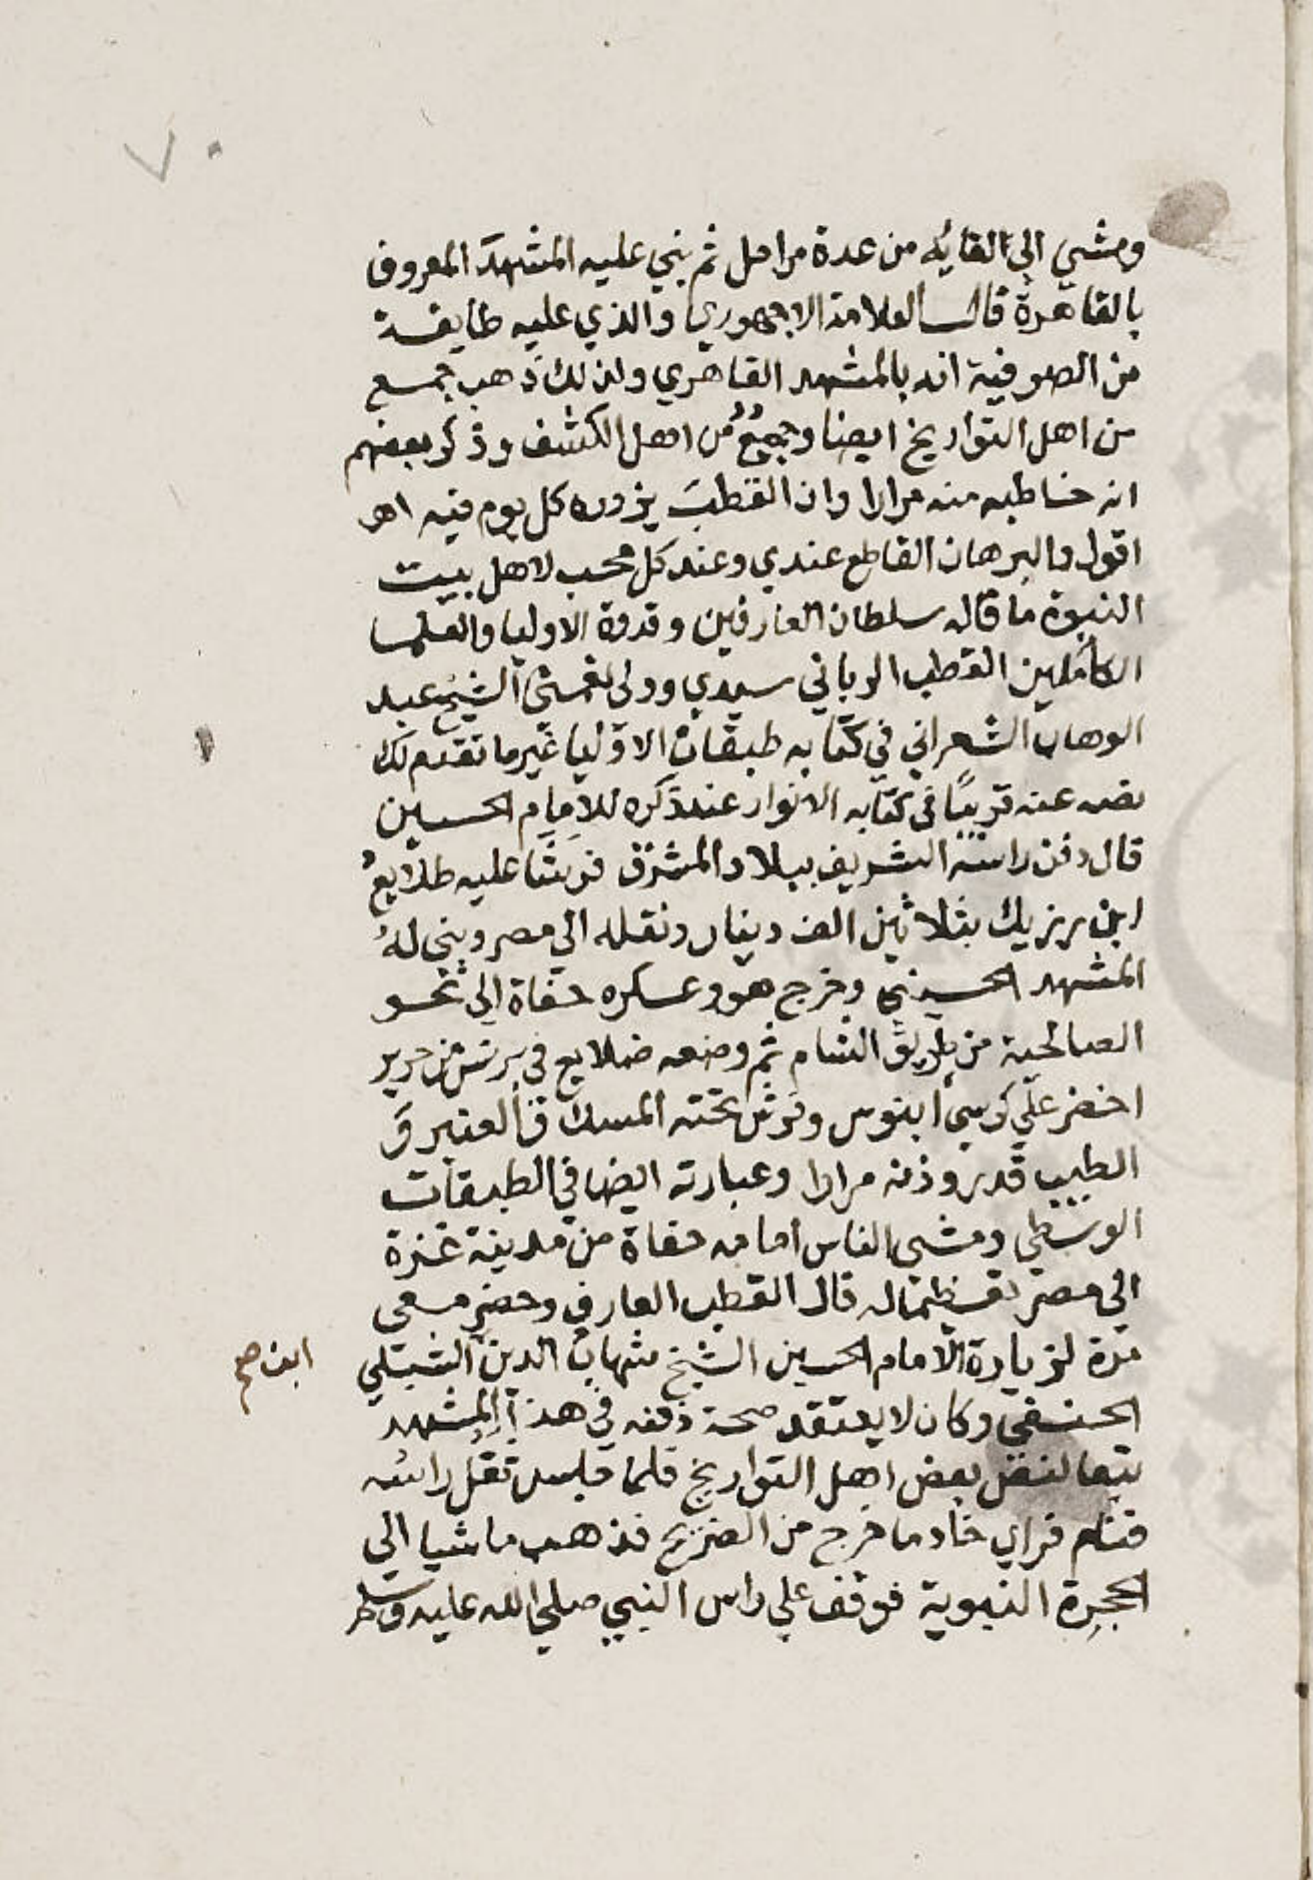 ٧٠
ومشي الي القايه من عدة مراحل ثم بني عليه المشهدَ المعروف
بالقاهرة قال العلامة الاجهوري والذي عليه طايفة
من الصوفية انه بالمشهد القاهري ولذلك ذهب جمع
من اهل التواريخ ايضا وجمعٌ من اهل الكشف وذكر بعضهم
انه خاطبه منه مرارا وان القطبَ يزوره كل يوم فيه اهـ
اقول والبرهان القاطع عندي وعند كل محب لاهل بيت
النبوة ما قاله سلطان العارفين وقدوة الاوليا والعلما
الكاملين القطب الرباني سيدي وولى نعمتي الشيخ عبد
الوهاب الشعراني في كتابه طبقات الاوليا غير ما تقدم لك
نصه عنه قريبًا في كتابه الانوار عند ذكره للامام الحسين
قال دفن راسه الشريف ببلاد المشرق فرشا عليه طلايعُ
ابن رزيك بثلاثين الف دينار ونقله الي مصر وبني لهُ
المشهد الحسيني وخرج هو وعسكره حفاة الي نحو
الصالحية من طريق الشام ثم وضعه طلايع في برنس من حرير
اخضر علي كرسي ابنوس وفرش تحته المسك والعنبر وَ
الطيب قدر وزنه مرارا وعبارته ايضا في الطبقات
الوسطي ومشي الناس امامه حفاة من مدينة غزة
الي مصر تعظيما له قال القطب العارف وحضر معى
مرة لزيارة الامام الحسين الشيخ شهاب الدين الشبلي
ابن صح
الحنفي وكان لا يعتقد صحة دفنه في هذا المشهد
تبعا لنص بعض اهل التواريخ فلما جلس ثقل راسه
فنام فراي خادما خرج من الضريح فذهب ماشيا الي
الحجرة النبوية فوقف علي راس النبي صلي الله عليه وسلم